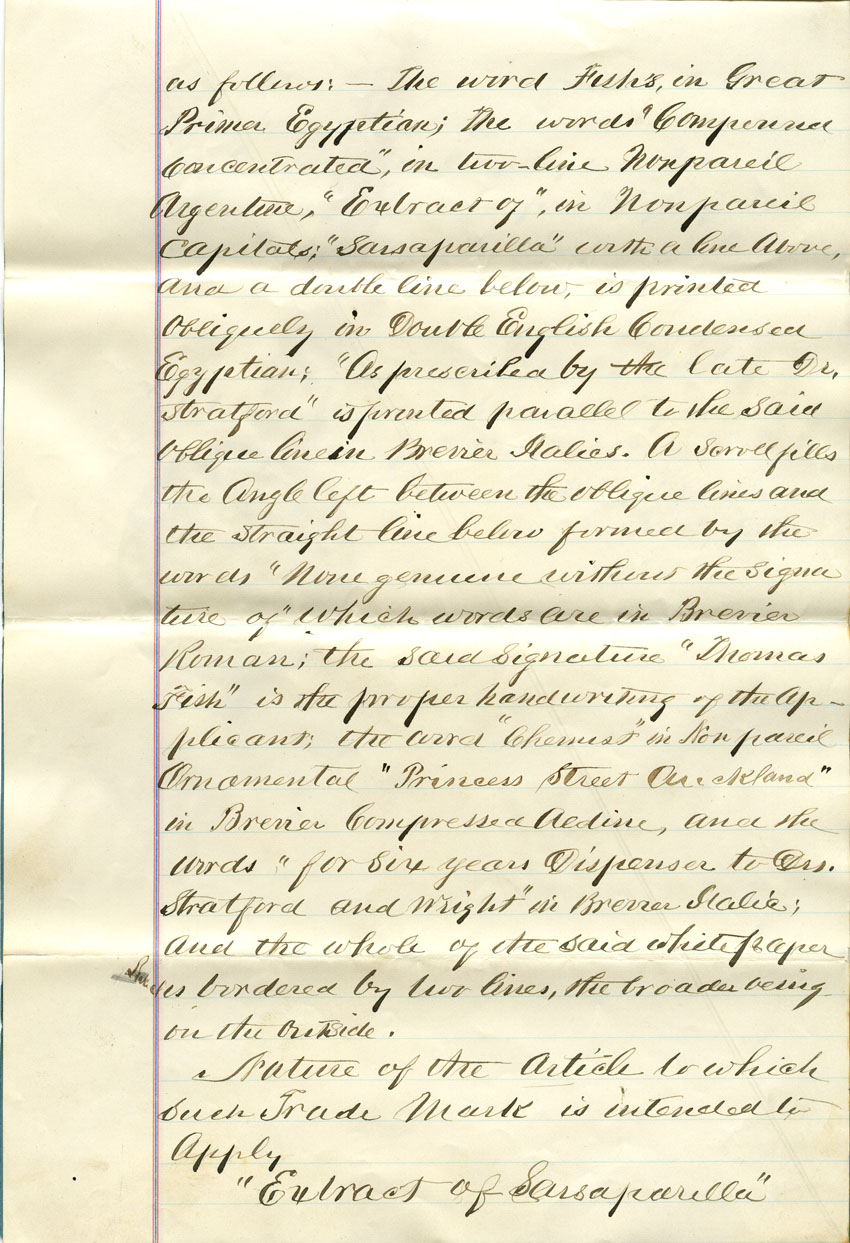 as follows: — The word Fish's, in Great
Primer Egyptian; the words "Compound
Concentrated", in two-line Nonpareil
Argentine, "Extract of", in Nonpareil
Capitals; "Sarsaparilla" with a line Above,
and a double line below, is printed
Obliquely in Double English Condensed
Egyptian; "As prescribed by the late Dr.
Stratford" is printed parallel to the said
oblique line in Brevier Italics. A Scroll fills
the Angle left between the oblique lines and
the straight line below formed by the
words "None genuine without the Signa
ture of" which words are in Brevier
Roman; the said Signature "Thomas
Fish" is the proper handwriting of the Ap-
plicant; the word "Chemist" in Nonpareil
Ornamental "Princess Street Auckland"
in Brevier Compressed Aldine, and the
words "for Six years Dispenser to Drs.
Stratford and Wright" in Brevier Italic;
And the whole of the said white paper
is bordered by two lines, the broader being
on the Outside.
Nature of the Article to which
such Trade Mark is intended to
Apply
"Extract of Sarsaparilla"